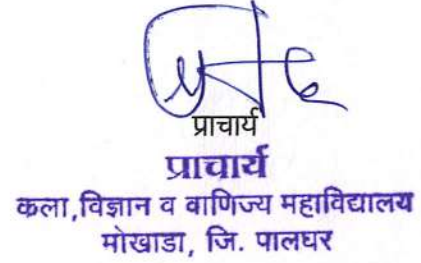 प्राचार्य
प्राचार्य
कला,विज्ञान व वाणिज्य महाविद्यालय
मोखाडा, जि. पालघर